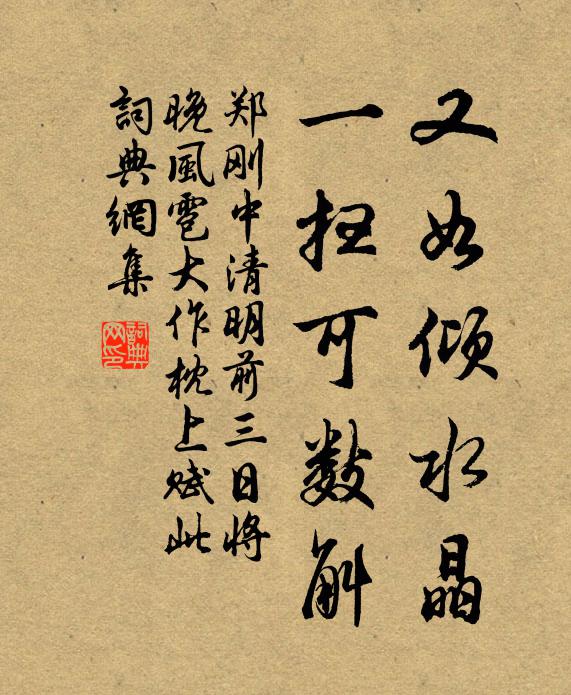 又如倾水晶
一扫可数斛
郑刚中清明前三日将
晚風雹大作枕上赋此
詞典網集
詞典网印